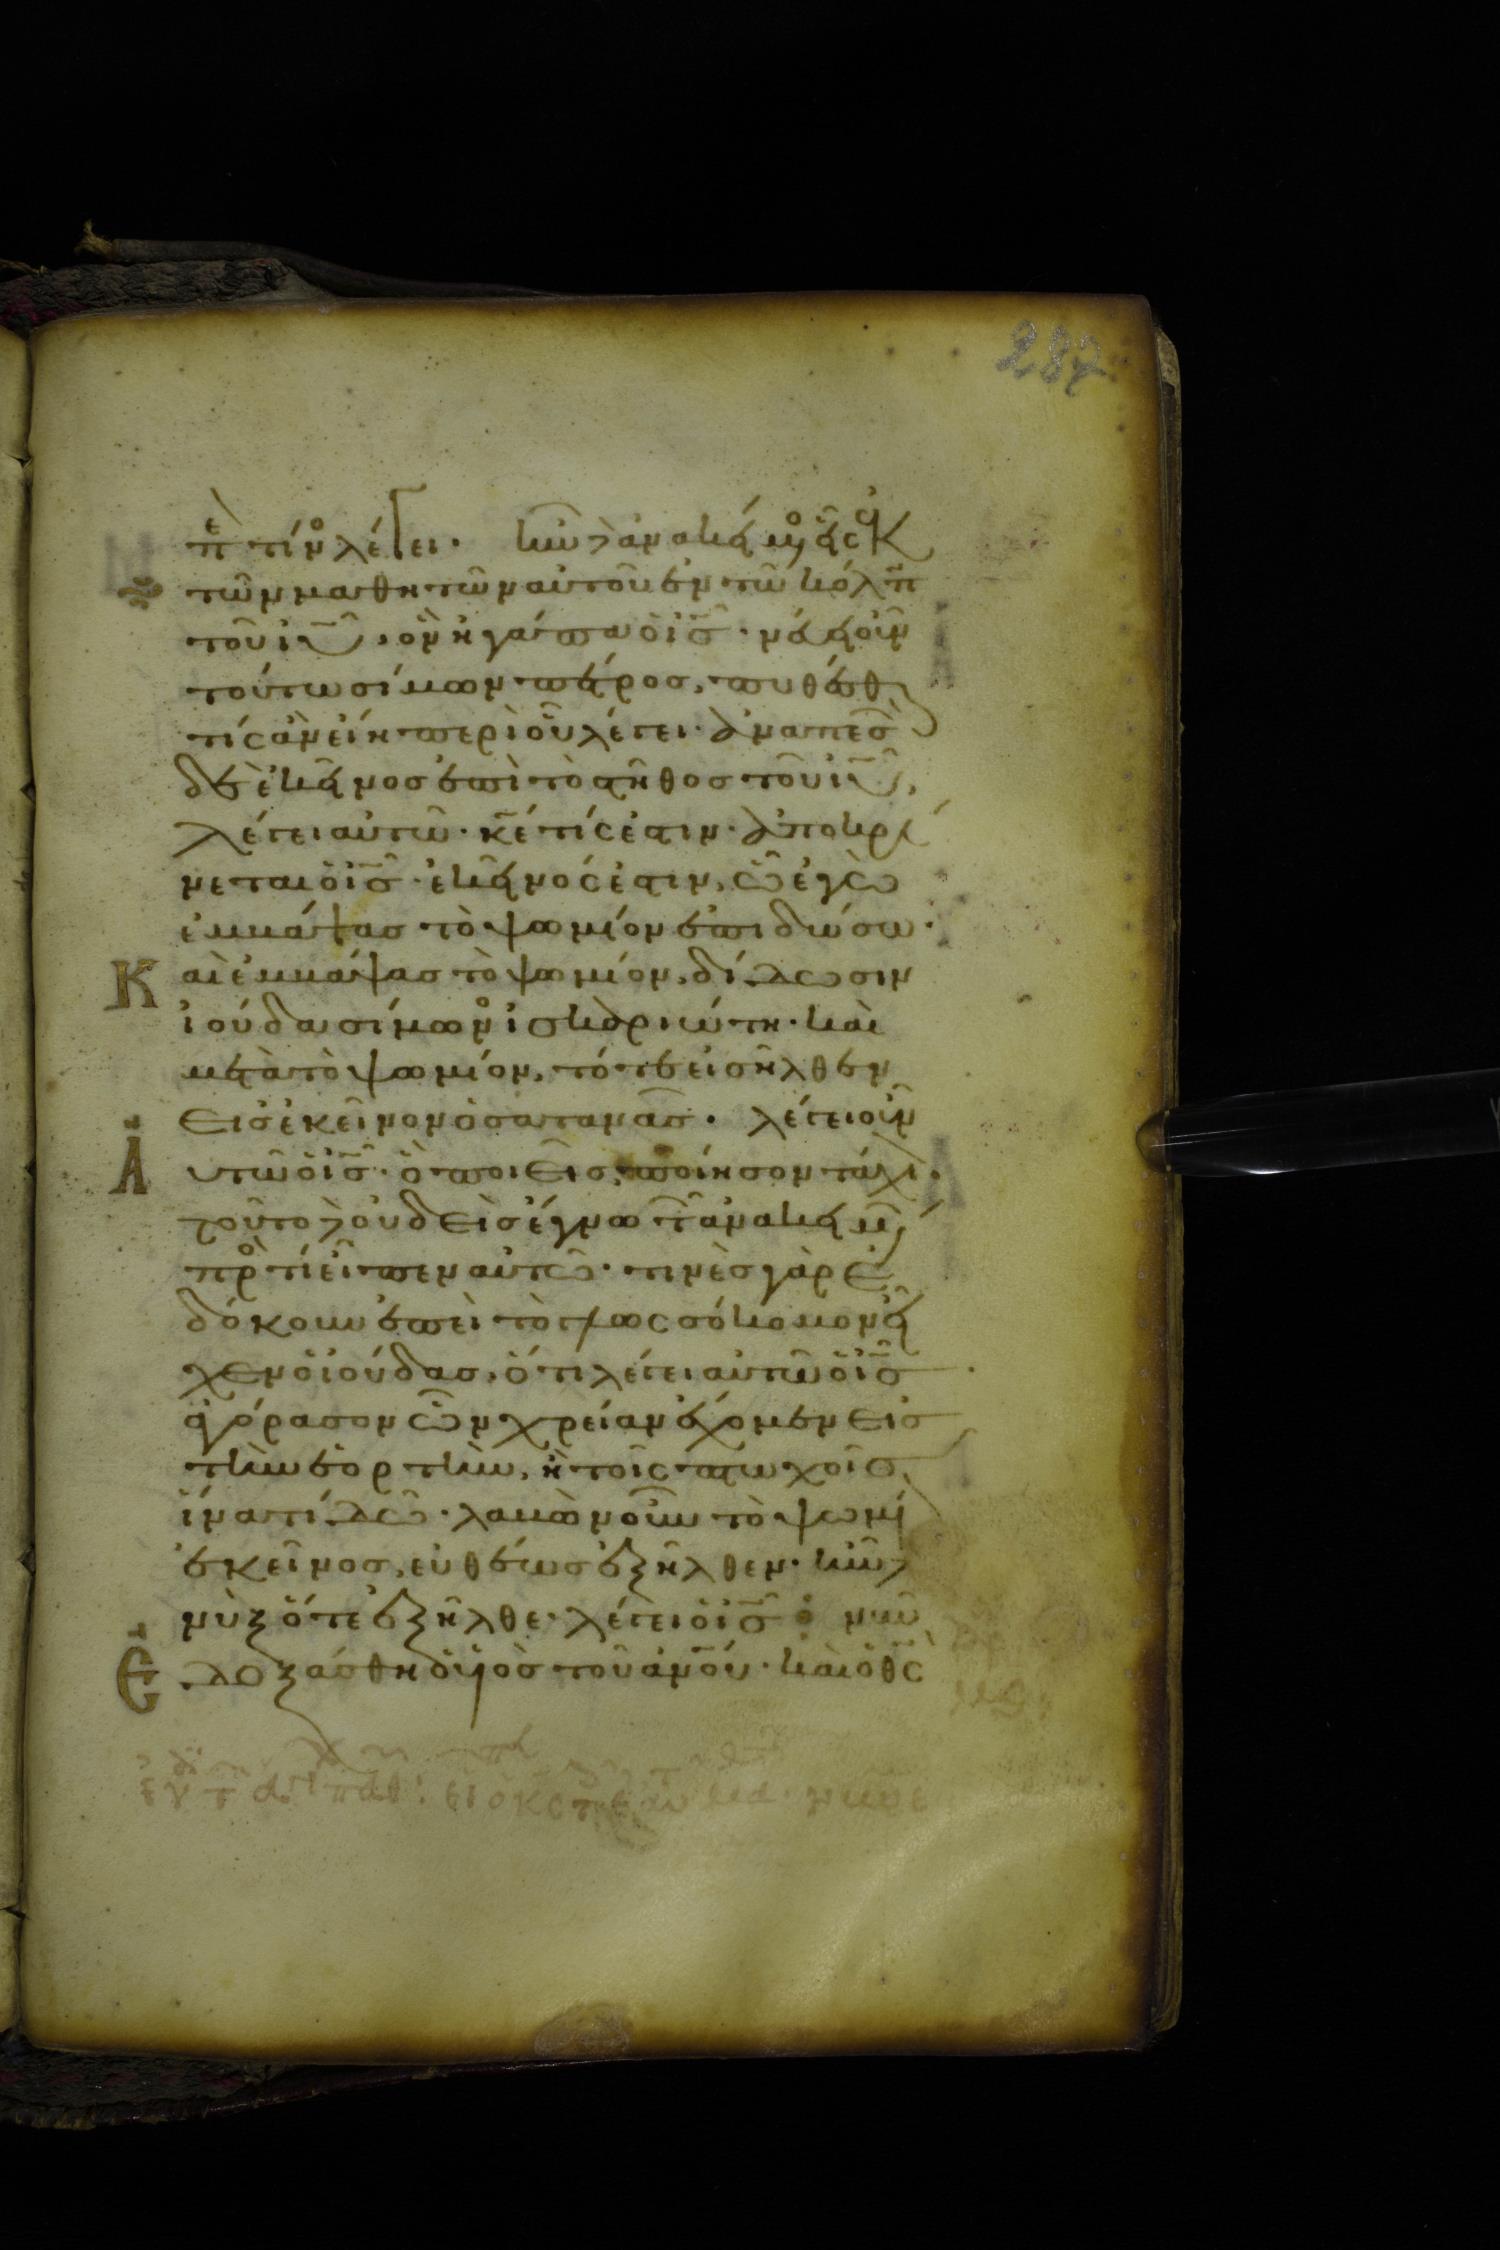 287
πε τίνος λέγει· ἦν δὲ ἀνακείμενος εἷς ἐκ
τῶν μαθητῶν αὐτοῦ ἐν τῶ κόλπ
τοῦ ιυ, ὃν ἠγάπα ὁ ις· νεύει οὖν
τούτω σίμων πέτρος, πυθέσθ
τίς ἂν εἴη περὶ οὗ λέγει· ἀναπεσ
δὲ ἐκεῖνος ἐπὶ τὸ στῆθος τοῦ ιυ,
λέγει αὐτῶ· κε τίς ἐστιν· ἀποκρί
νεται ὁ ις· ἐκεῖνός ἐστιν, ὧ ἐγὼ
ἐμβάψας τὸ ψωμίον ἐπιδώσω·
Κ αὶ ἐμβάψας τὸ ψωμίον, δίδωσιν
ἰούδα σίμωνος ἰσκαριώτη· καὶ
μετὰ τὸ ψωμίον, τότε εἰσῆλθεν
εἰς ἐκεῖνον ὁ σατανᾶς. λέγει οὖν
Α υτῶ ὁ ις· ὃ ποιεῖς, ποίησον τάχι·
τοῦτο δὲ οὐδεὶς ἔγνω τῶν ἀνακειμ
πρὸς τί εἶπεν αὐτῶ· τινὲς γὰρ ἐ
δόκουν ἐπεὶ τὸ γλωσσόκομον εἶ
χεν ὁ ἰούδας, ὅτι λέγει αὐτῶ ὁ ις
ἀγόρασον ὧν χρείαν ἔχομεν εἰς
τὴν ἑορτὴν, ἢ τοῖς πτωχοῖς
ἵνα τί δῶ· λαβὼν οὖν τὸ ψωμί
ἐκεῖνος, εὐθέως ἐξῆλθεν· ἦν δὲ
νὺξ ὅτε ἐξῆλθε· λέγει ὁ ις νῦν
Ε δοξάσθη ὁ υἱὸς τοῦ ανου· καὶ ὁ θς